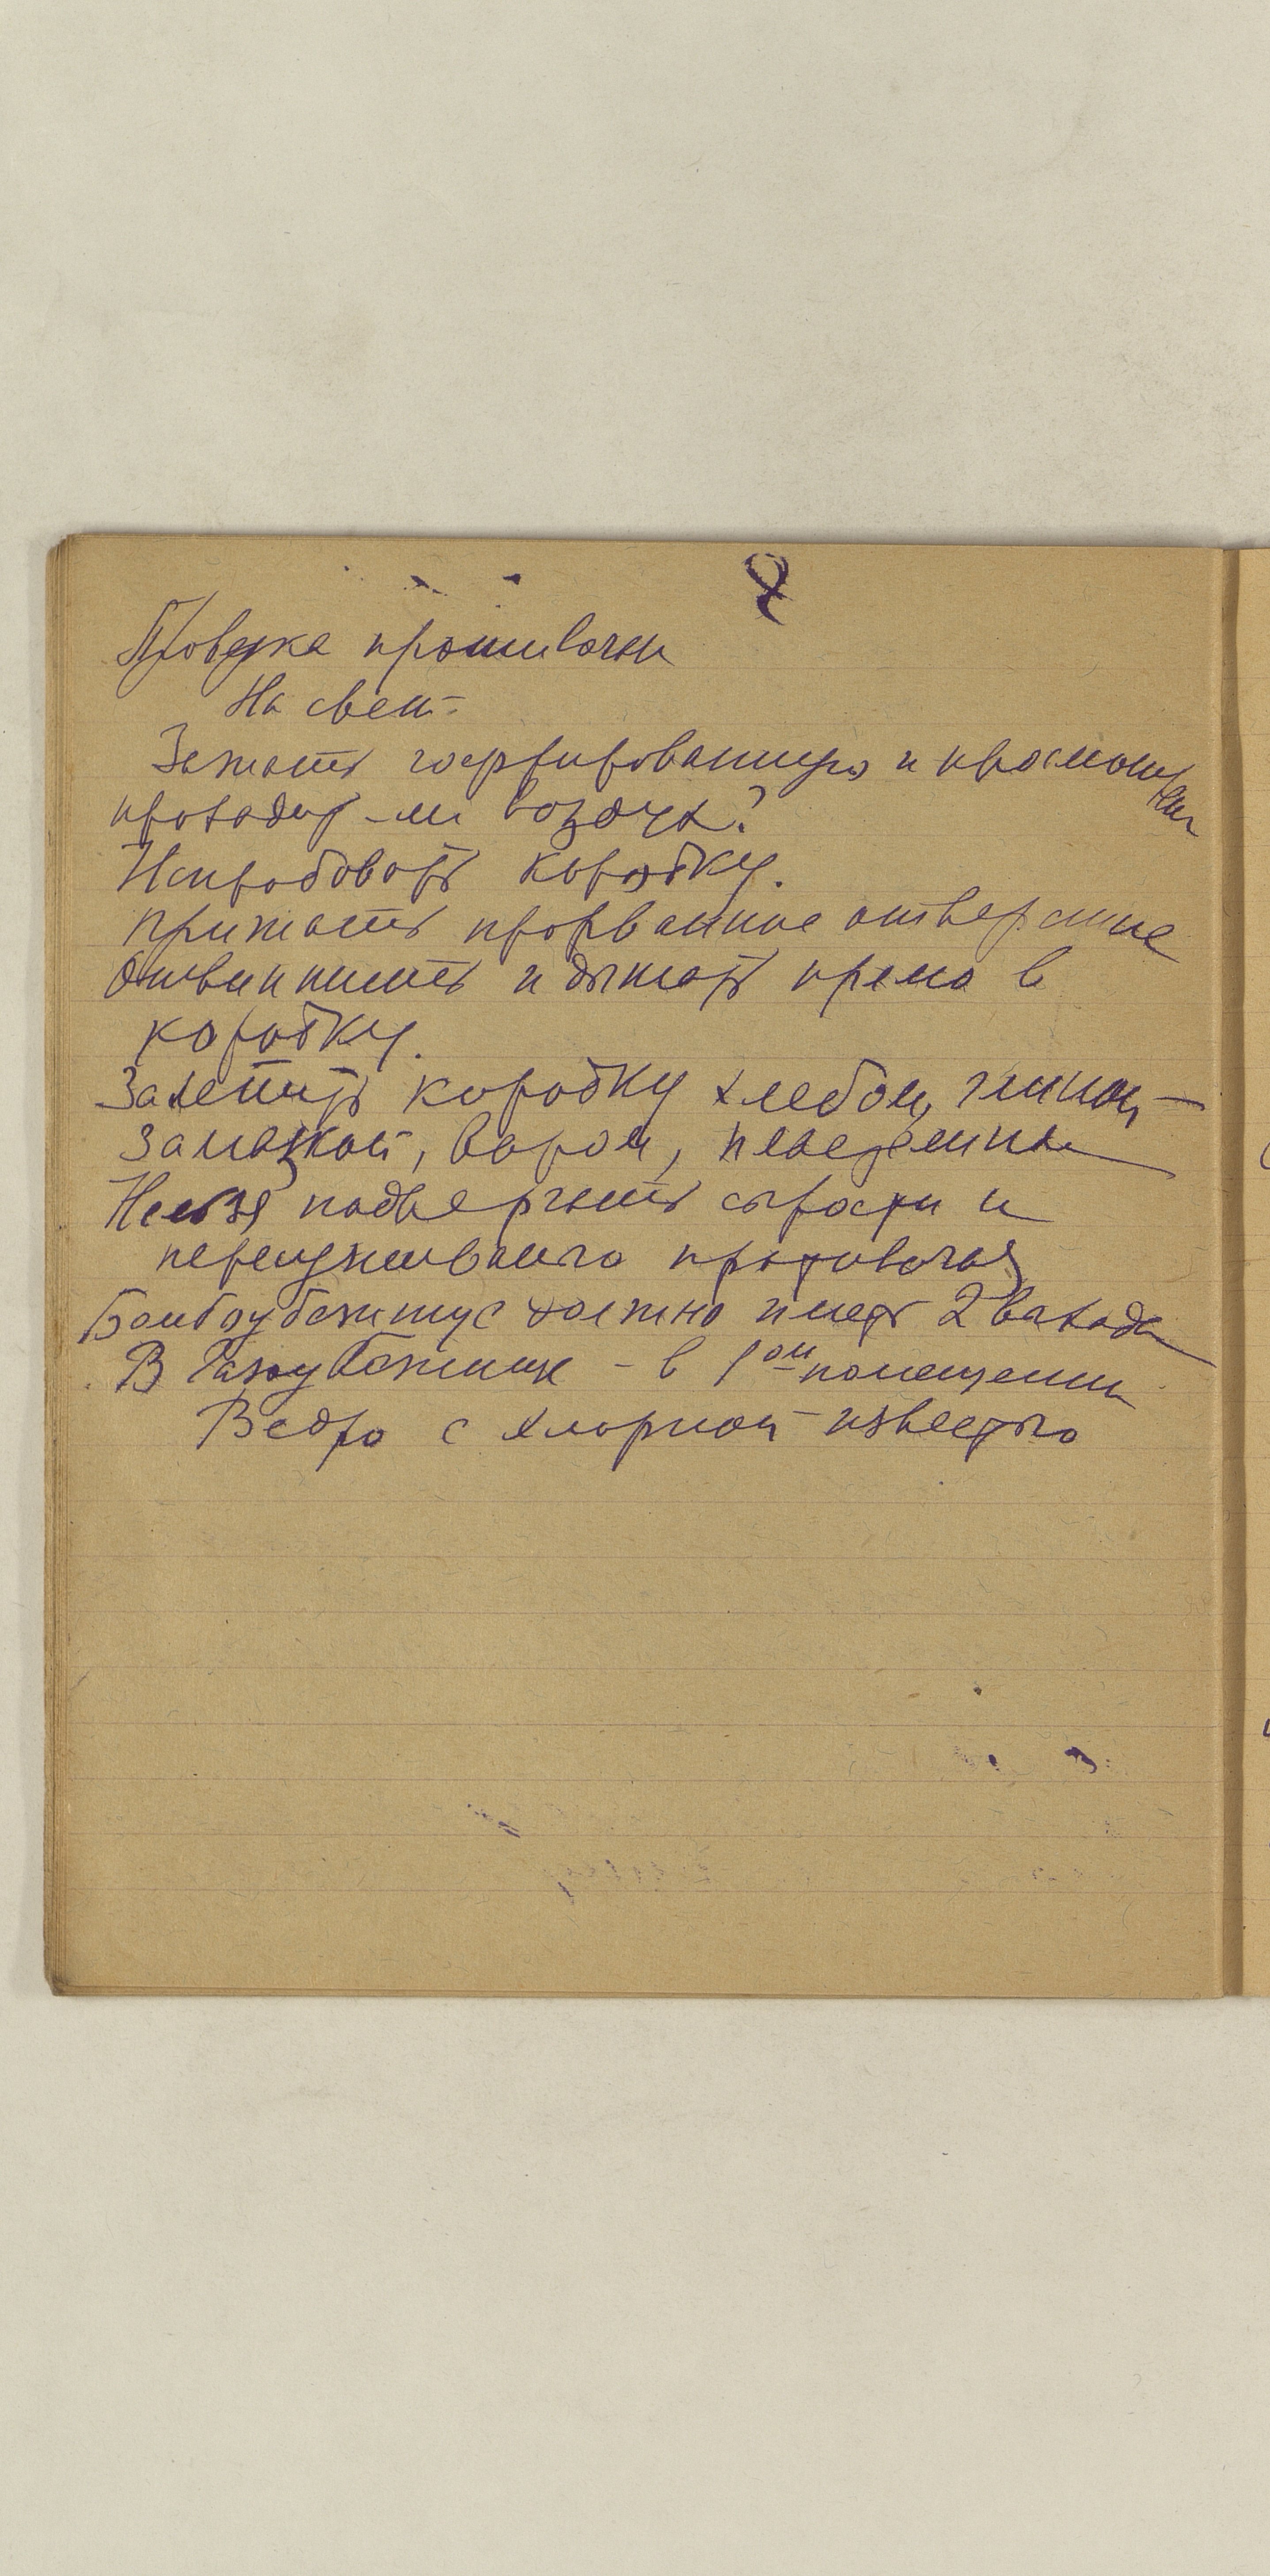 8
Проверка противогаза
На свет.
Зажать гофрированную и просмотреть
проходит-ли воздух?
Испробовать коробку.
прижать прорванное отверстие
Отвинтить и дышать прямо в
коробку.
Залепить коробку хлебом, глиной
замазкой, варом,
Нельзя подвергать сырости и
противогаз
Бомбоубежище должно иметь 2 выхода
В Газоубежище - в 1ом помещении
Ведро с хлорной известью